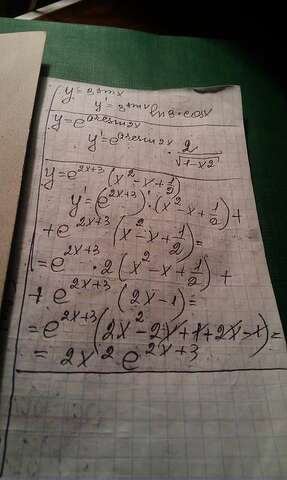 y = 3^sinx
y' = 3^sinx ln3·cosx
y = e^arcsin2x
y' = e^arcsin2x · 2/√(1-x²)
y = e^(2x+3) (x² - x + 1/2)
y' = (e^(2x+3))' · (x² - x + 1/2) +
+ e^(2x+3) (x² - x + 1/2)' =
= e^(2x+3) · 2 (x² - x + 1/2) +
+ e^(2x+3) (2x - 1) =
= e^(2x+3) (2x² - 2x + 1 + 2x - 1) =
= 2x² e^(2x+3)